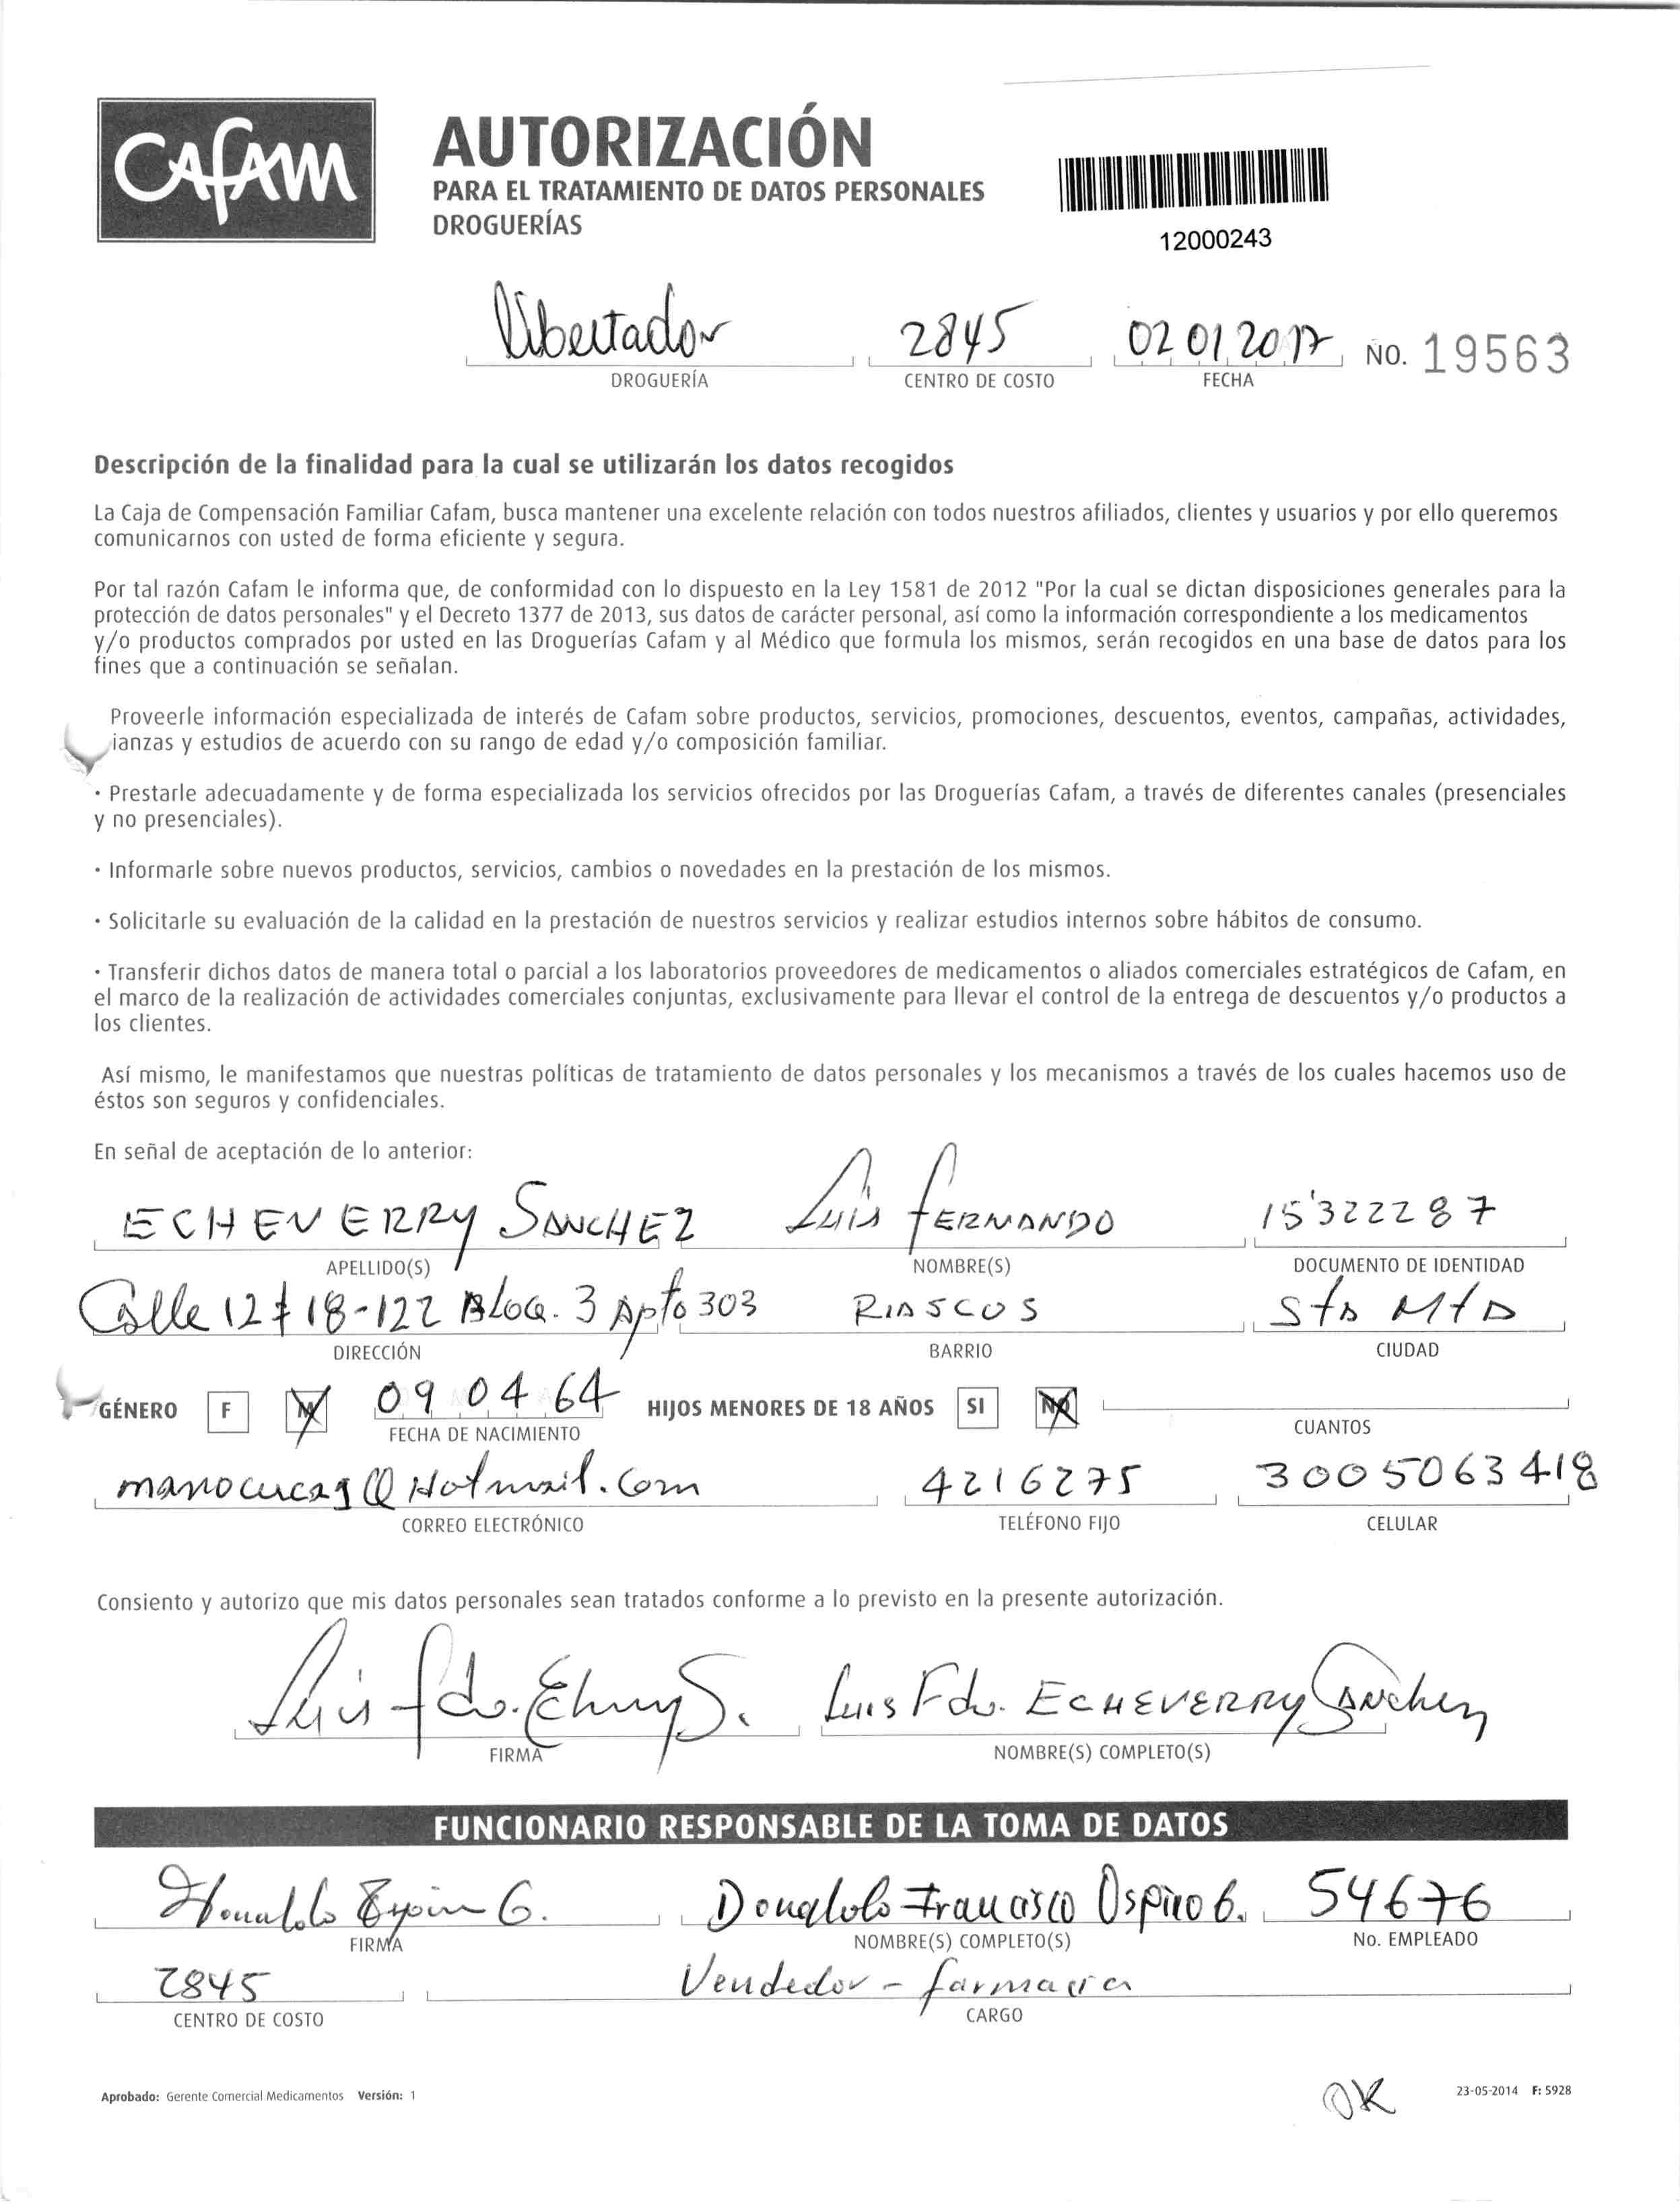 CAFAM
AUTORIZACIÓN
PARA EL TRATAMIENTO DE DATOS PERSONALES
DROGUERÍAS
12000243
Libertador 2845 02 01 2017 NO. 19563
DROGUERÍA CENTRO DE COSTO FECHA
Descripción de la finalidad para la cual se utilizarán los datos recogidos
La Caja de Compensación Familiar Cafam, busca mantener una excelente relación con todos nuestros afiliados, clientes y usuarios y por ello queremos
comunicarnos con usted de forma eficiente y segura.
Por tal razón Cafam le informa que, de conformidad con lo dispuesto en la Ley 1581 de 2012 "Por la cual se dictan disposiciones generales para la
protección de datos personales" y el Decreto 1377 de 2013, sus datos de carácter personal, así como la información correspondiente a los medicamentos
y/o productos comprados por usted en las Droguerías Cafam y al Médico que formula los mismos, serán recogidos en una base de datos para los
fines que a continuación se señalan.
Proveerle información especializada de interés de Cafam sobre productos, servicios, promociones, descuentos, eventos, campañas, actividades,
ianzas y estudios de acuerdo con su rango de edad y/o composición familiar.
· Prestarle adecuadamente y de forma especializada los servicios ofrecidos por las Droguerías Cafam, a través de diferentes canales (presenciales
y no presenciales).
· Informarle sobre nuevos productos, servicios, cambios o novedades en la prestación de los mismos.
· Solicitarle su evaluación de la calidad en la prestación de nuestros servicios y realizar estudios internos sobre hábitos de consumo.
· Transferir dichos datos de manera total o parcial a los laboratorios proveedores de medicamentos o aliados comerciales estratégicos de Cafam, en
el marco de la realización de actividades comerciales conjuntas, exclusivamente para llevar el control de la entrega de descuentos y/o productos a
los clientes.
Así mismo, le manifestamos que nuestras políticas de tratamiento de datos personales y los mecanismos a través de los cuales hacemos uso de
éstos son seguros y confidenciales.
En señal de aceptación de lo anterior:
ECHEVERRY SANCHEZ Luis FERNANDO 15'322287
APELLIDO(S) NOMBRE(S) DOCUMENTO DE IDENTIDAD
Calle 12 # 18-122 Bloq. 3 Apto 303 RIASCOS Sta Mta
DIRECCIÓN BARRIO CIUDAD
GÉNERO F M 09 04 64 HIJOS MENORES DE 18 AÑOS SI NO
FECHA DE NACIMIENTO CUANTOS
@ Hotmail.com 4216275 3005063418
CORREO ELECTRÓNICO TELÉFONO FIJO CELULAR
Consiento y autorizo que mis datos personales sean tratados conforme a lo previsto en la presente autorización.
Luis fdo. Echvrry S. Luis Fdo. ECHEVERRY Sanchez
FIRMA NOMBRE(S) COMPLETO(S)
FUNCIONARIO RESPONSABLE DE LA TOMA DE DATOS
Donaldo Francisco Ospino G. 54676
FIRMA NOMBRE(S) COMPLETO(S) No. EMPLEADO
2845 Vendedor - farmacia
CENTRO DE COSTO CARGO
Aprobado: Gerente Comercial Medicamentos Versión: 1 OK 23-05-2014 F: 5928